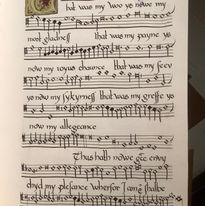 That was my woo ys nowe my
most gladness that was my payne ys
now my ioyus chaunce that was my feer
ys now my sykyrness that was my greffe ys
now my allegeance
Thus hath nowe gee
chyd my plesance wherfor I am & shalbe